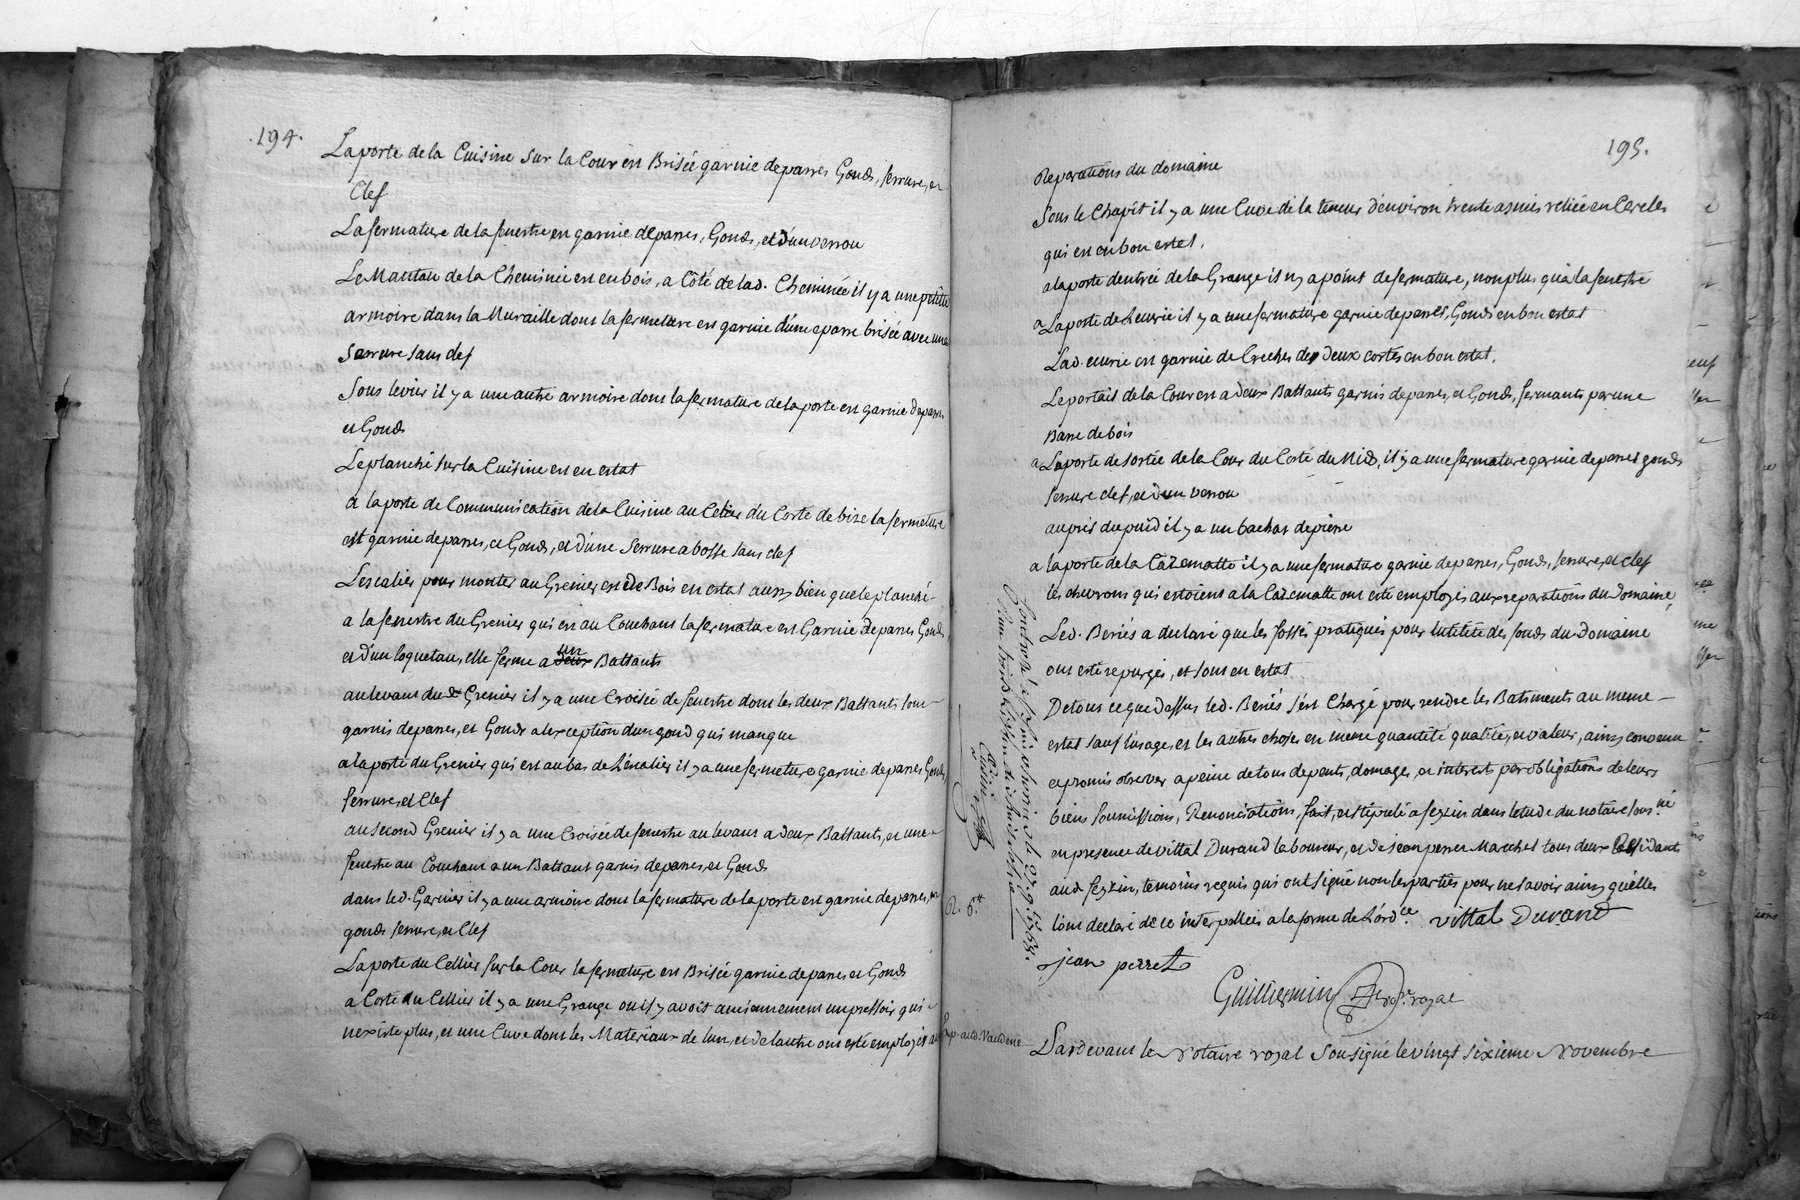 .194.
La porte de la Cuisine sur la Cour est Brisée garnie deparres Gonds, serrure, et
Clef
La fermature de la fenestre est garnie deparres, Gonds, et d'un verrou
Le Mantau de la Cheminée est en bois, a Côté de lad. Cheminée il y a une petitte
armoire dans la Muraille dont la fermeture est garnie d'une parre brisée avec une
Serrure sans clef
Sous levier il y a une autre armoire dont la fermature de la porte est garnie deparres
et Gonds
Le planché sur la Cuisine est en estat
a la porte de Communication de la Cuisine au Celier du Corté de bize la fermature
est garnie deparres, et Gonds, et d'une Serrure a bosse sans clef
Lescalier pour monter au Grenier est de Bois en estat aussy bien que le planché
a la fenestre du Grenier qui est au Couchant la fermature est Garnie deparres Gonds,
et d'un loquetau, elle ferme a un Battants
au levant dud Grenier il y a une Croisée de fenestre dont les deux Battants sont
garnis deparres, et Gonds a lexception d'un gond qui manque
a la porte du Grenier qui est au bas de L'escalier il y a une fermeture garnie deparres Gonds,
serrure, et Clef
au second Grenier il y a une Croisée de fenestre au levant a deux Battants, et une
fenestre au Couchant a un Battant garnis deparres, et Gonds
dans led. Garnier il y a une armoire dont la fermature de la porte est garnie deparres, et
gonds serrure, et Clef
La porte du Cellier sur la Cour la fermature est Brisée garnie deparres et Gonds
a Corté du Cellier il y a une Grange ou il y avoit anciennement un pressoir qui
nexiste plus, et une Cuve dont les Materiaux de lun, et de lautre ont esté employés aux
195.
Reparations du domaine
Sous le Chapit il y a une Cuve de la teneur d'environ trente asnées reliée en Cercles
qui est en bon estat.
a la porte dentrée de la Grange il n'y a point de fermature, non plus qu'a la fenestre
a La porte de Leurie il y a une fermature garnie deparres, Gonds en bon estat
Lad. eurie est garnie de Creches des deux cortés en bon estat.
Le portail de la Cour est a deux Battants garnis deparres, et Gonds, fermants par une
Barre de bois
a La porte de sortie de la Cour du Corté du Midy, il y a une fermature garnie deparres gonds
serrure clef, et d'un verrou
auprés du puid il y a un bachas de pierre
a la porte de la Cazematte il y a une fermature garnie deparres, Gonds, serrure, et clef
les chevrons qui estoient a la Cazematte ont esté employés aux reparations du Domaine,
Led. Beriés a declaré que les fossés pratiqués pour lutilité des fonds du Domaine
ont esté repurgés, et sont en estat
De tout ce que dessus led. Beriés s'est Chargé pour rendre les Batiments au meme
estat sauf lusage, et les autres choses en même quantité qualité, et valeur, ainsy convenu
et promis observer a peine de tous depents, domages, et interests par obligations de leurs
biens soumissions, Renonciations, fait, et stipulé a feyzin dans letude du notaire souss.né
en presence de vittal Durand laboureur, et de jean perret Marchet tous deux Residants
aud feyzin, temoins requis qui ont signé non les parties pour ne savoir ainsy qu'elles
lont declaré de ce interpellées a la forme de L'ord.ce vittal Durand
jean perret
Guilliermin no.re royal
R. 6.tt
Pardevant le Notaire royal Soussigné le vingt sixieme Novembre